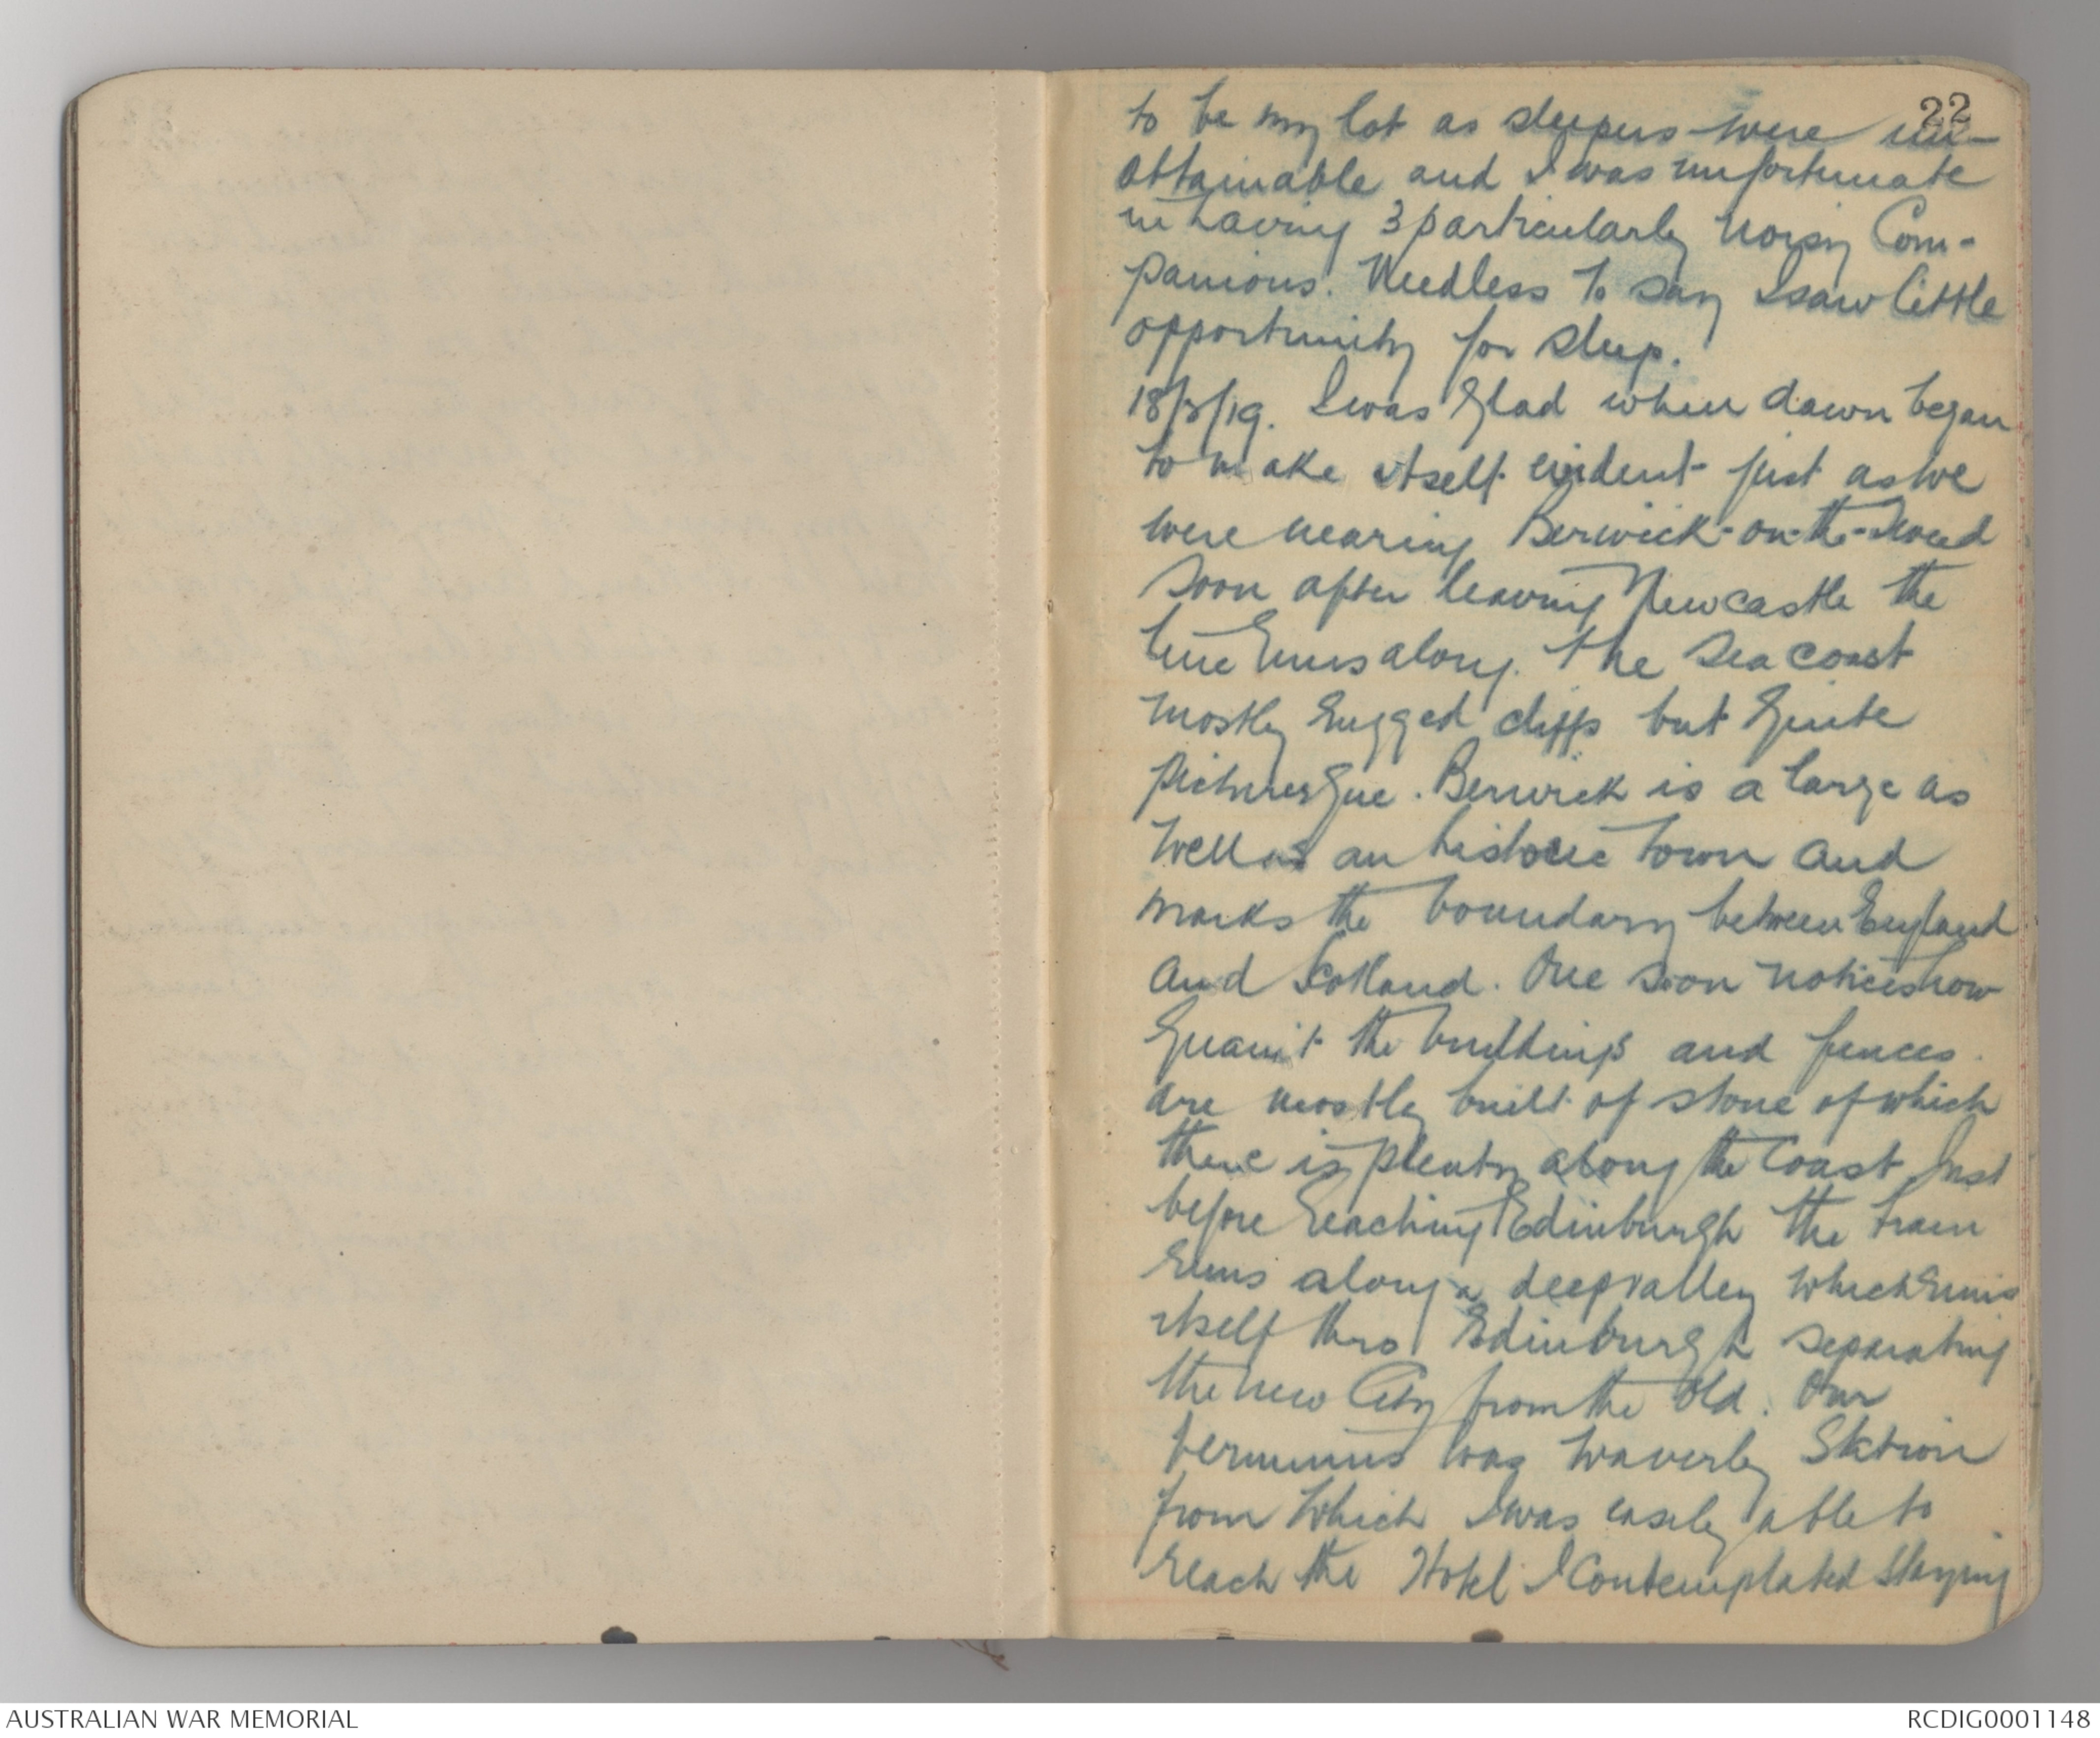 22
to be my lot as sleepers were un-
attainable and I was unfortunate
in having 3 particularly noisy Com-
panions. Needless to say I saw little
opportunity for sleep.
18/3/19. I was glad when dawn began
to make itself evident just as we
were nearing Berwick-on-the-Tweed
Soon after leaving Newcastle the
line runs along the sea coast
mostly rugged cliffs but quite
picturesque. Berwick is a large as
well as an historic town and
marks the boundary between England
and Scotland. One soon notices how
quaint the buildings and fences
are mostly built of stone of which
there is plenty along the Coast Just
before reaching Edinburgh the train
runs along a deep valley which runs
itself thro Edinburgh separating
the new City from the old. Our
terminus was Waverley Station
from which I was easily able to
reach the Hotel I contemplated staying
AUSTRALIAN WAR MEMORIAL
RCDIG0001148